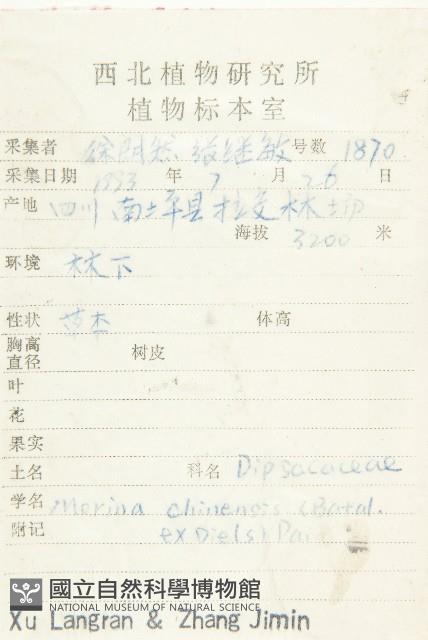 西北植物研究所
植物标本室
采集者 徐朗然 张继敏 号数 1870
采集日期 1993 年 7 月 26 日
产地 四川 南坪县 林场
海拔 3200 米
环境 林下
性状 草本 体高
胸高直径 树皮
叶
花
果实
土名 科名 Dipsacaceae
学名 Morina chinensis (Batal.
附记 ex Diels) Pai
國立自然科學博物館
NATIONAL MUSEUM OF NATURAL SCIENCE
Xu Langran & Zhang Jimin